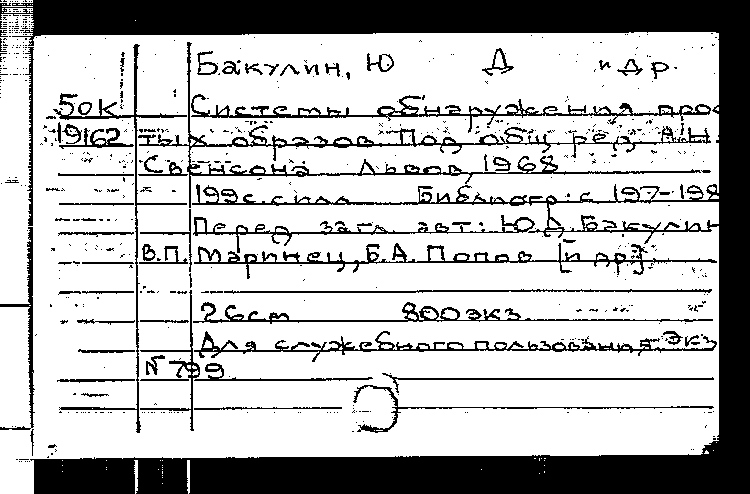 Бакулин, Ю Д и др.
50К Системы обнаружения прос
19162 тых образов. Под общ. ред. А.Н.
Свенсона Львов, 1968
199с. с илл Библиогр: с 197-198
Перед загл. авт: Ю.Д. Бакулин
В.П. Маринец, Б.А. Попов [и др]
26см 800экз.
Для служебного пользования. Экз
№799